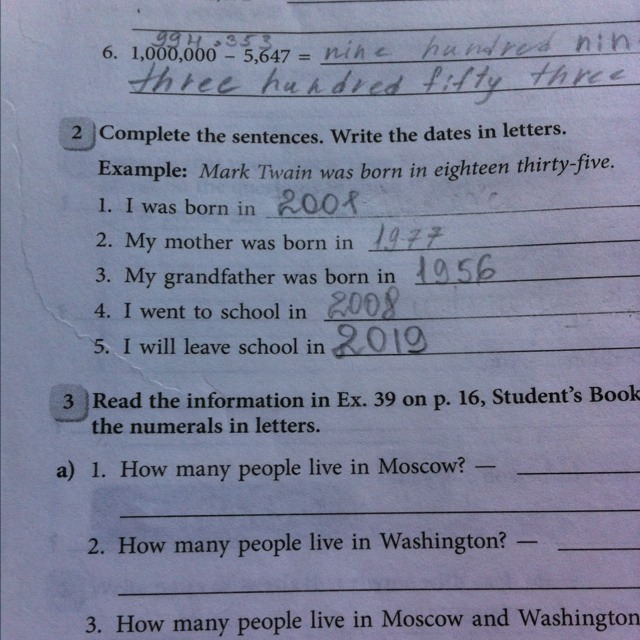 994 353
6. 1,000,000 – 5,647 = nine hundred nin
three hundred fifty three
2 Complete the sentences. Write the dates in letters.
Example: Mark Twain was born in eighteen thirty-five.
1. I was born in 2001
2. My mother was born in 1977
3. My grandfather was born in 1956
4. I went to school in 2008
5. I will leave school in 2019
3 Read the information in Ex. 39 on p. 16, Student's Book
the numerals in letters.
a) 1. How many people live in Moscow? —
2. How many people live in Washington? —
3. How many people live in Moscow and Washington